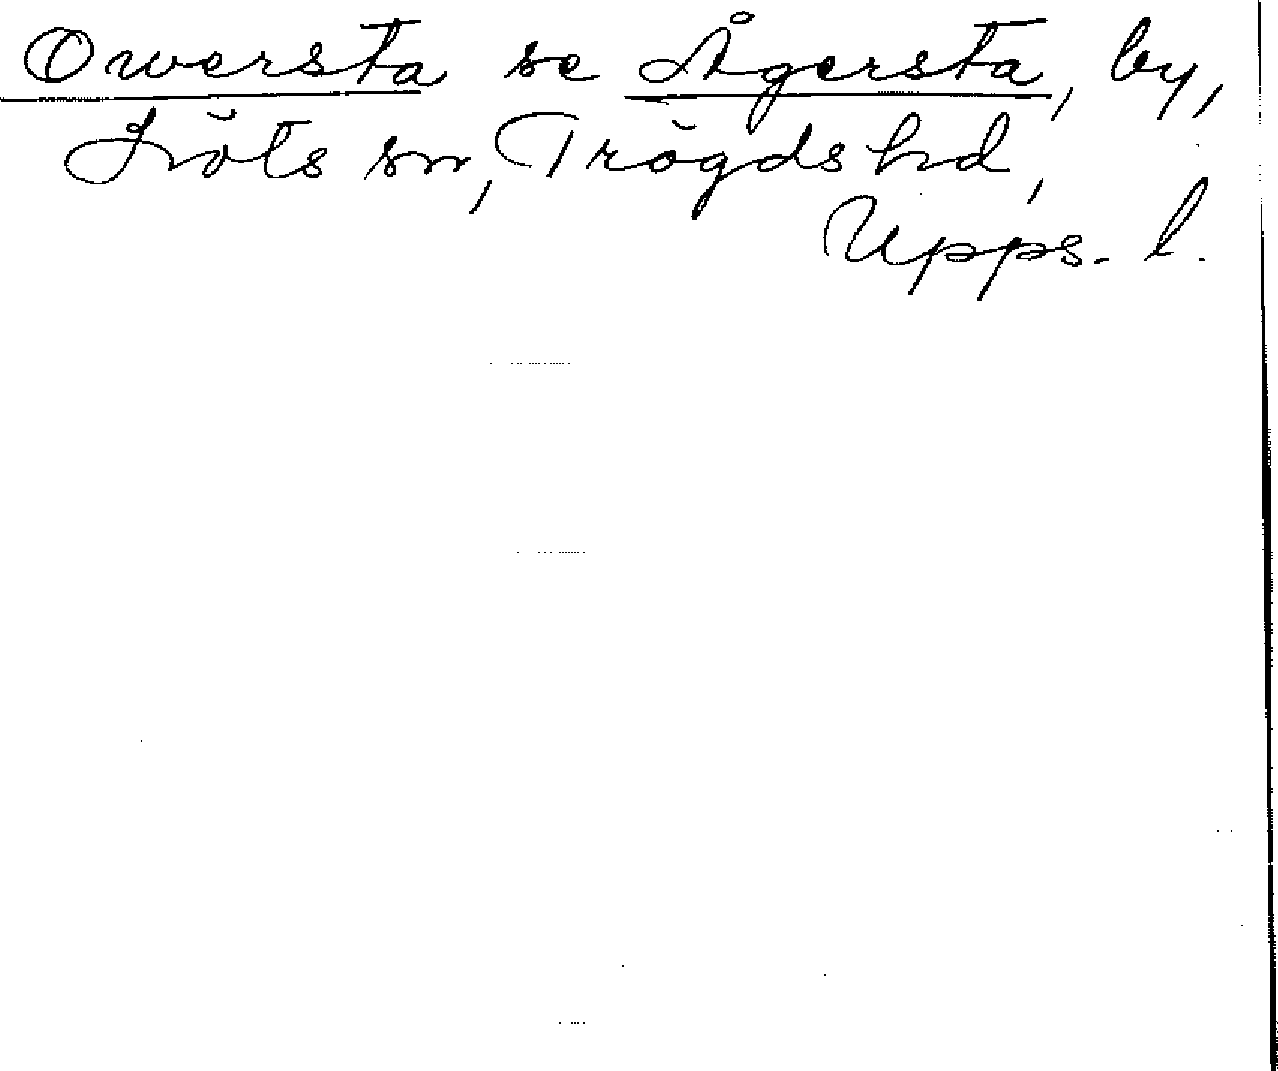 Owersta se Ågersta, by,
Löts sn, Trögds hd,
Upps. l.